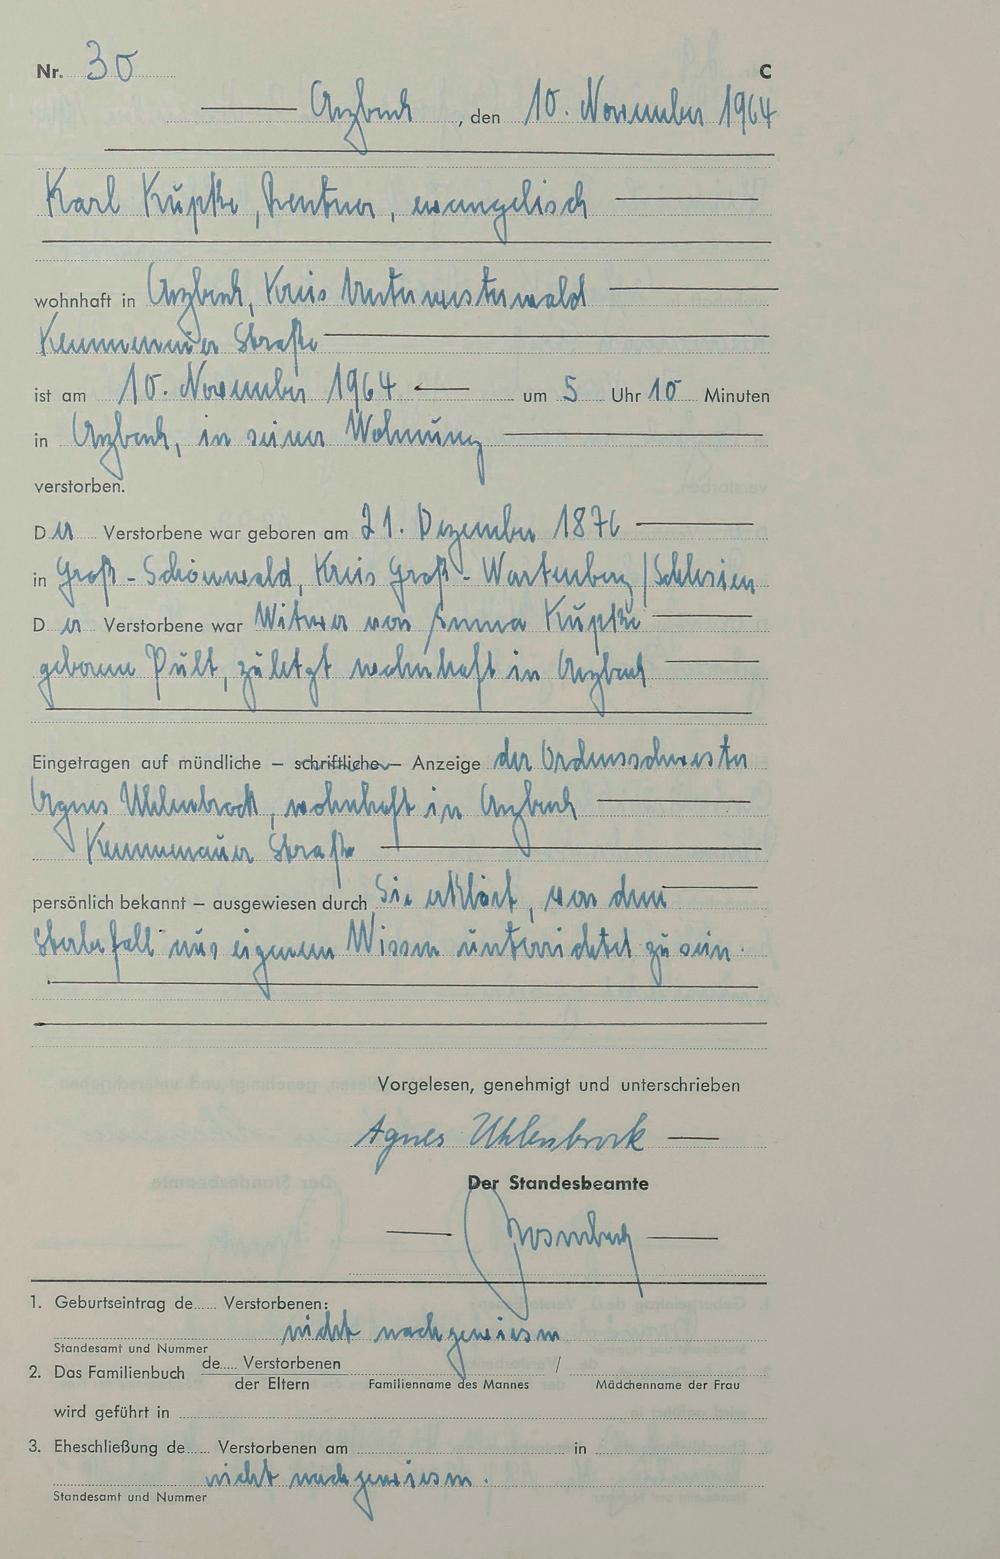 Nr. 30 C
Arzbach, den 10. November 1964
Karl Kupke, Rentner, evangelisch
wohnhaft in Arzbach, Kreis Unterwesterwald
Kemmenauer Straße
ist am 10. November 1964 um 5 Uhr 10 Minuten
in Arzbach, in seiner Wohnung
verstorben.
Der Verstorbene war geboren am 21. Dezember 1876
in Groß-Schönwald, Kreis Groß-Wartenberg/Schlesien
Der Verstorbene war Witwer von Emma Kupke
geborene Pult, zuletzt wohnhaft in Arzbach
Eingetragen auf mündliche – schriftliche – Anzeige der Ordensschwester
Agnes Uhlenbrock, wohnhaft in Arzbach
Kemmenauer Straße
persönlich bekannt – ausgewiesen durch Sie erklärt, von dem
Sterbefall aus eigenem Wissen unterrichtet zu sein.
Vorgelesen, genehmigt und unterschrieben
Agnes Uhlenbrock
Der Standesbeamte
1. Geburtseintrag de..... Verstorbenen:
nicht nachgewiesen
Standesamt und Nummer
2. Das Familienbuch de..... Verstorbenen /
der Eltern Familienname des Mannes Mädchenname der Frau
wird geführt in
3. Eheschließung de..... Verstorbenen am in
nicht nachgewiesen.
Standesamt und Nummer